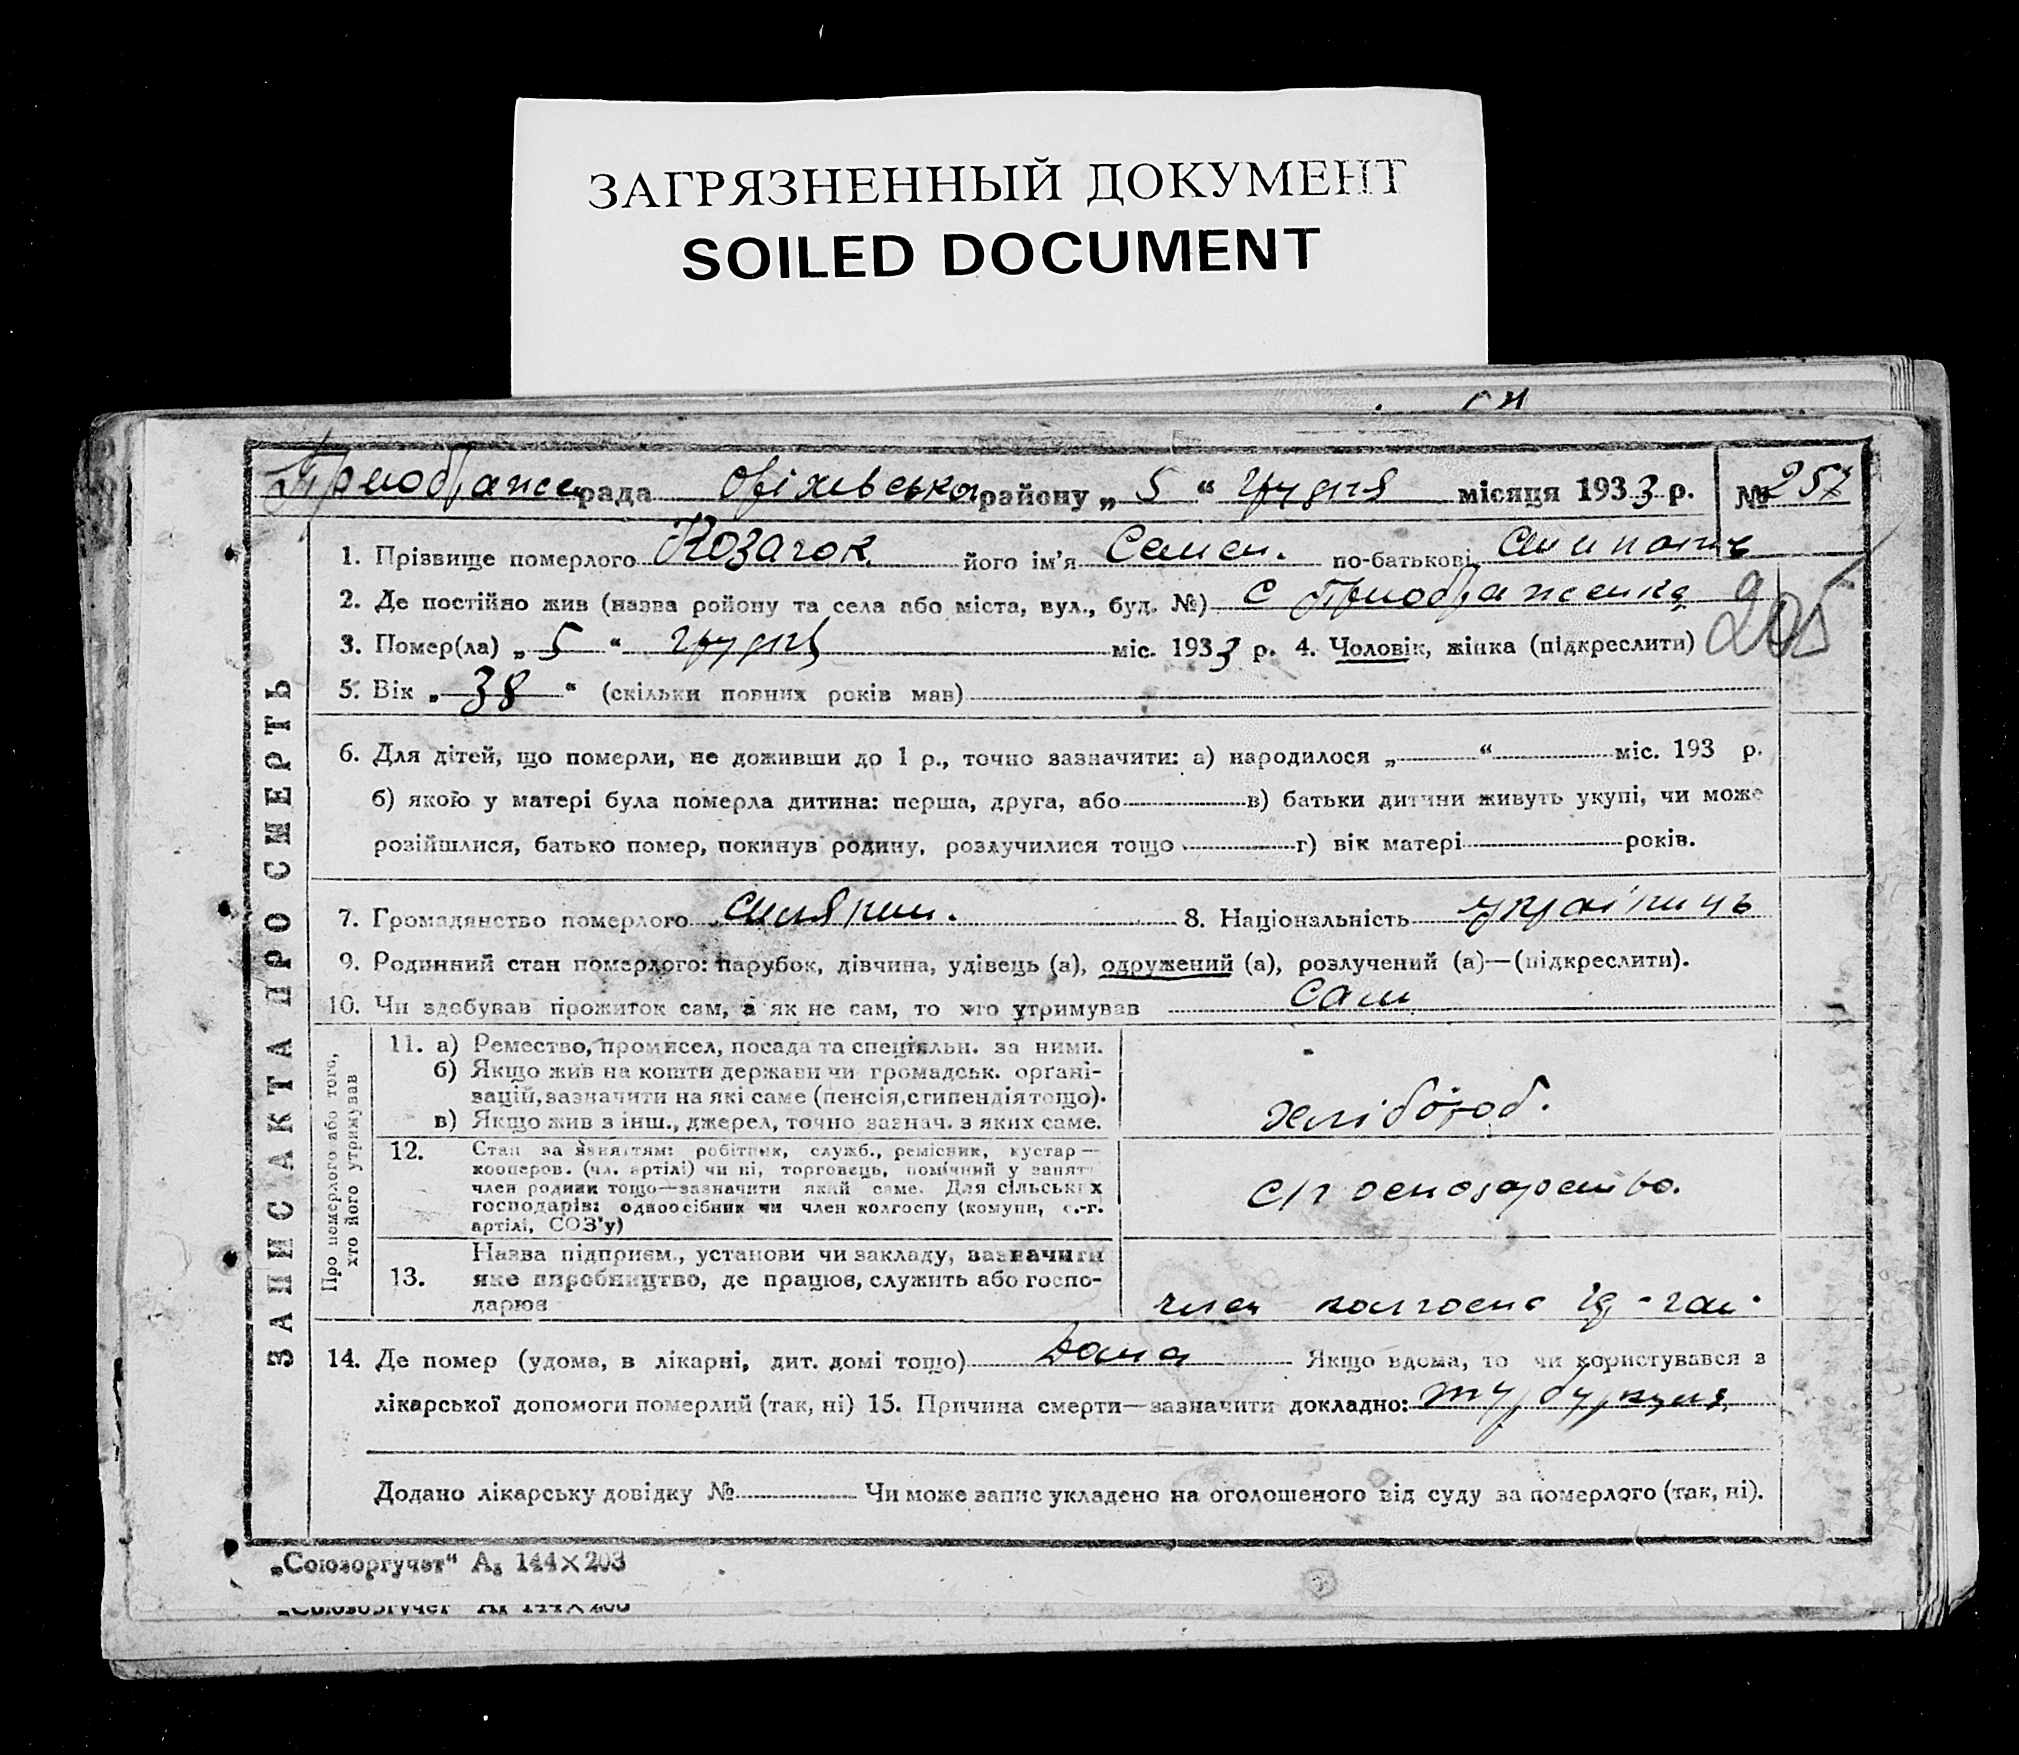 ЗАГРЯЗНЕННЫЙ ДОКУМЕНТ
SOILED DOCUMENT
рада Оріхівська району „ 5 “ грудня місяця 1933 р. № 257
ЗАПИС АКТА ПРО СМЕРТЬ
1. Прізвище померлого Козачок його ім'я Семен. по-батькові
2. Де постійно жив (назва ройону та села або міста, вул., буд. №) с Преображенка
205
3. Помер(ла) „ 5 “ грудня міс. 1933 р. 4. Чоловік, жінка (підкреслити)
5. Вік „ 38 “ (скільки повних років мав)
6. Для дітей, що померли, не доживши до 1 р., точно зазначити: а) народилося „ “ міс. 193 р.
б) якою у матері була померла дитина: перша, друга, або в) батьки дитини живуть укупі, чи може
розійшлися, батько помер, покинув родину, розлучилися тощо г) вік матері років.
7. Громадянство померлого селянин. 8. Національність українць
9. Родинний стан померлого: парубок, дівчина, удівець (а), одружений (а), розлучений (а)—(підкреслити).
10. Чи здобував прожиток сам, а як не сам, то хто утримував сам
Про померлого або того, хто його утримував
11. а) Ремество, промисел, посада та спеціяльн. за ними.
б) Якщо жив на кошти держави чи громадськ. органі-
зацій, зазначити на які саме (пенсія, стипендія тощо).
в) Якщо жив з інш., джерел, точно зазнач. з яких саме.
хлібороб.
12. Стан за заняттям: робітник, служб., ремісник, кустар—
кооперов. (чл. артілі) чи ні, торговець, помічний у занятт
член родини тощо—зазначити який саме. Для сільських
господарів: одноосібник чи член колгоспу (комуни, с.-г.
артілі, СОЗ'у)
с/г
13. Назва підприєм., установи чи закладу, зазначити
яке виробництво, де працює, служить або госпо-
дарює
член колгоспа
14. Де помер (удома, в лікарні, дит. домі тощо) Дома Якщо вдома, то чи користувався з
лікарської допомоги померлий (так, ні) 15. Причина смерти—зазначити докладно:
Додано лікарську довідку № Чи може запис укладено на оголошеного від суду за померлого (так, ні).
„Союзоргучет“ А₅ 144×203
„Союзоргучет“ А₅ 144×203